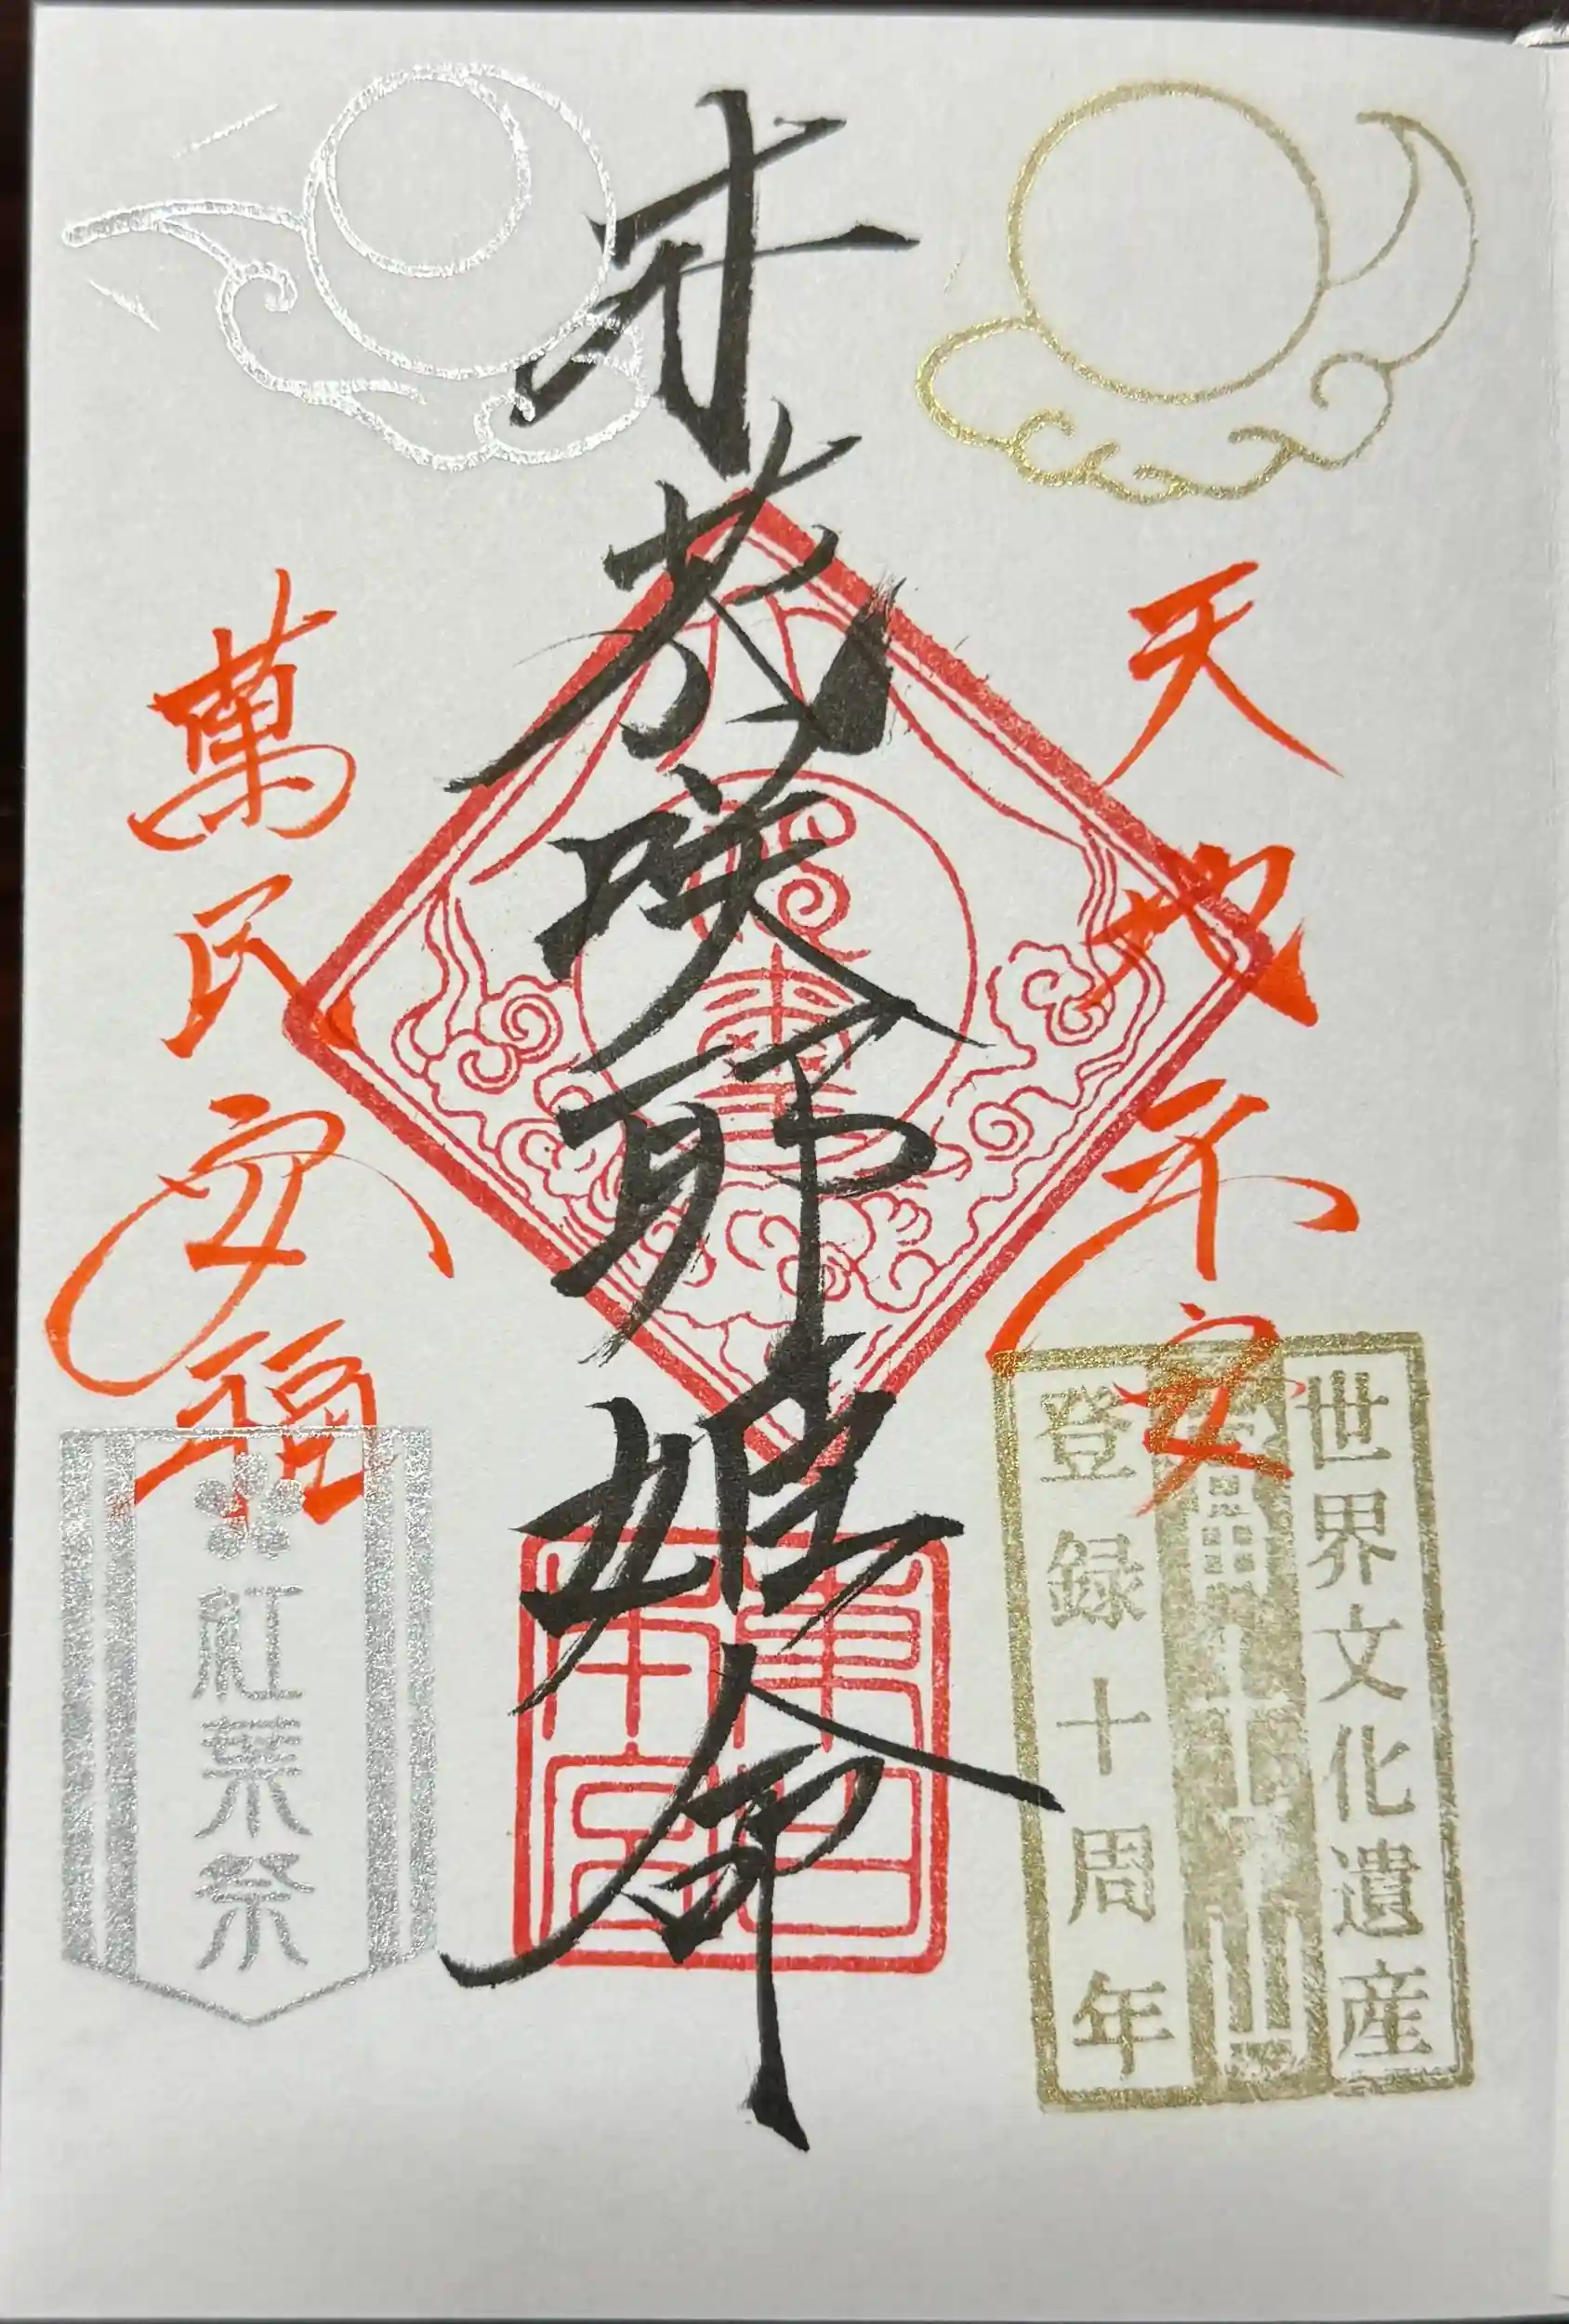 天地平安
世界文化遺産
富士山
登録十周年
木花咲耶姫命
萬民安福
紅葉祭